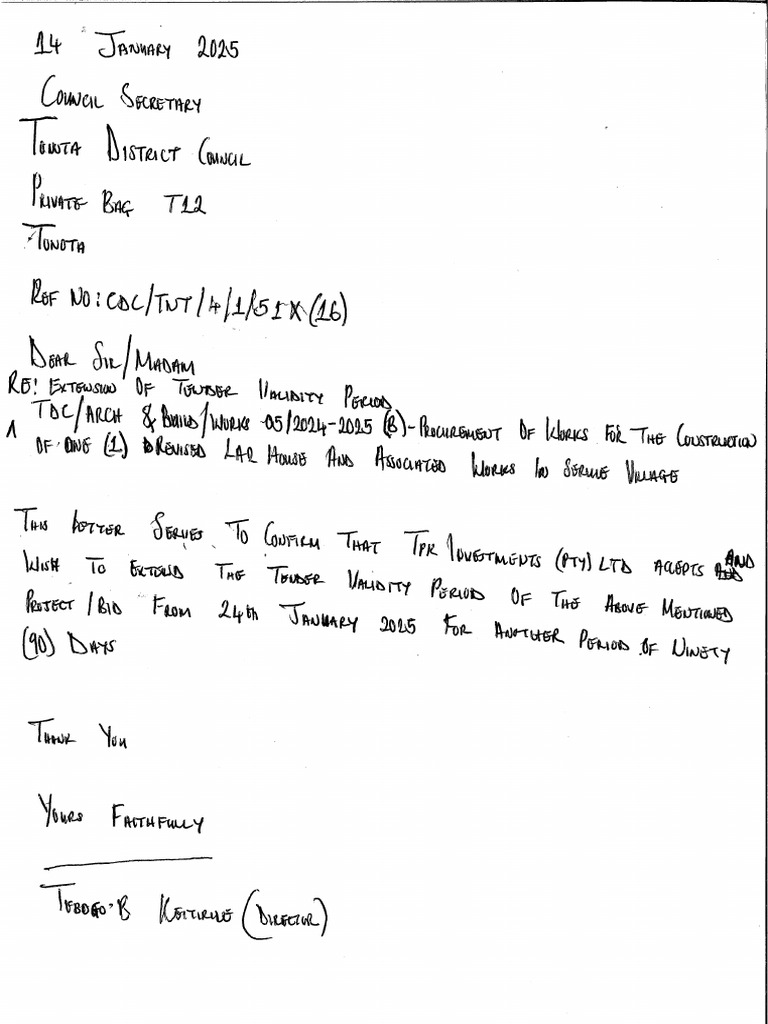 14 January 2025
Council Secretary
Tonota District Council
Private Bag T12
Tonota
Ref No: CDC/TNT/4/1/51 X (16)
Dear Sir/Madam
RE: Extension Of Tender Validity Period
1 TDC/ARCH & Build/Works 05/2024-2025 (B) - Procurement Of Works For The Construction
Of One (1) Revised LAP House And Associated Works In Serule Village
This Letter Serves To Confirm That TPK Investments (Pty) Ltd Accepts And
Wish To Extend The Tender Validity Period Of The Above Mentioned
Project/Bid From 24th January 2025 For Another Period Of Ninety
(90) Days
Thank You
Yours Faithfully
Tebogo B (Director)